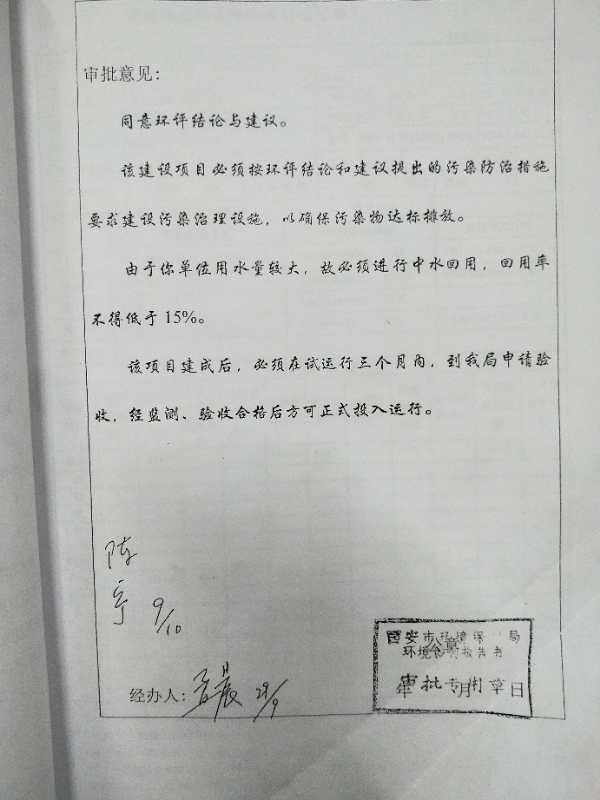 审批意见：
同意环评结论与建议。
该建设项目必须按环评结论和建议提出的污染防治措施
要求建设污染治理设施，以确保污染物达标排放。
由于你单位用水量较大，故必须进行中水回用，回用率
不得低于15%。
该项目建成后，必须在试运行三个月内，到我局申请验
收，经监测、验收合格后方可正式投入运行。
9/10
安市环境保 局
公章
审批专用章
年 月 日
经办人：
29/9